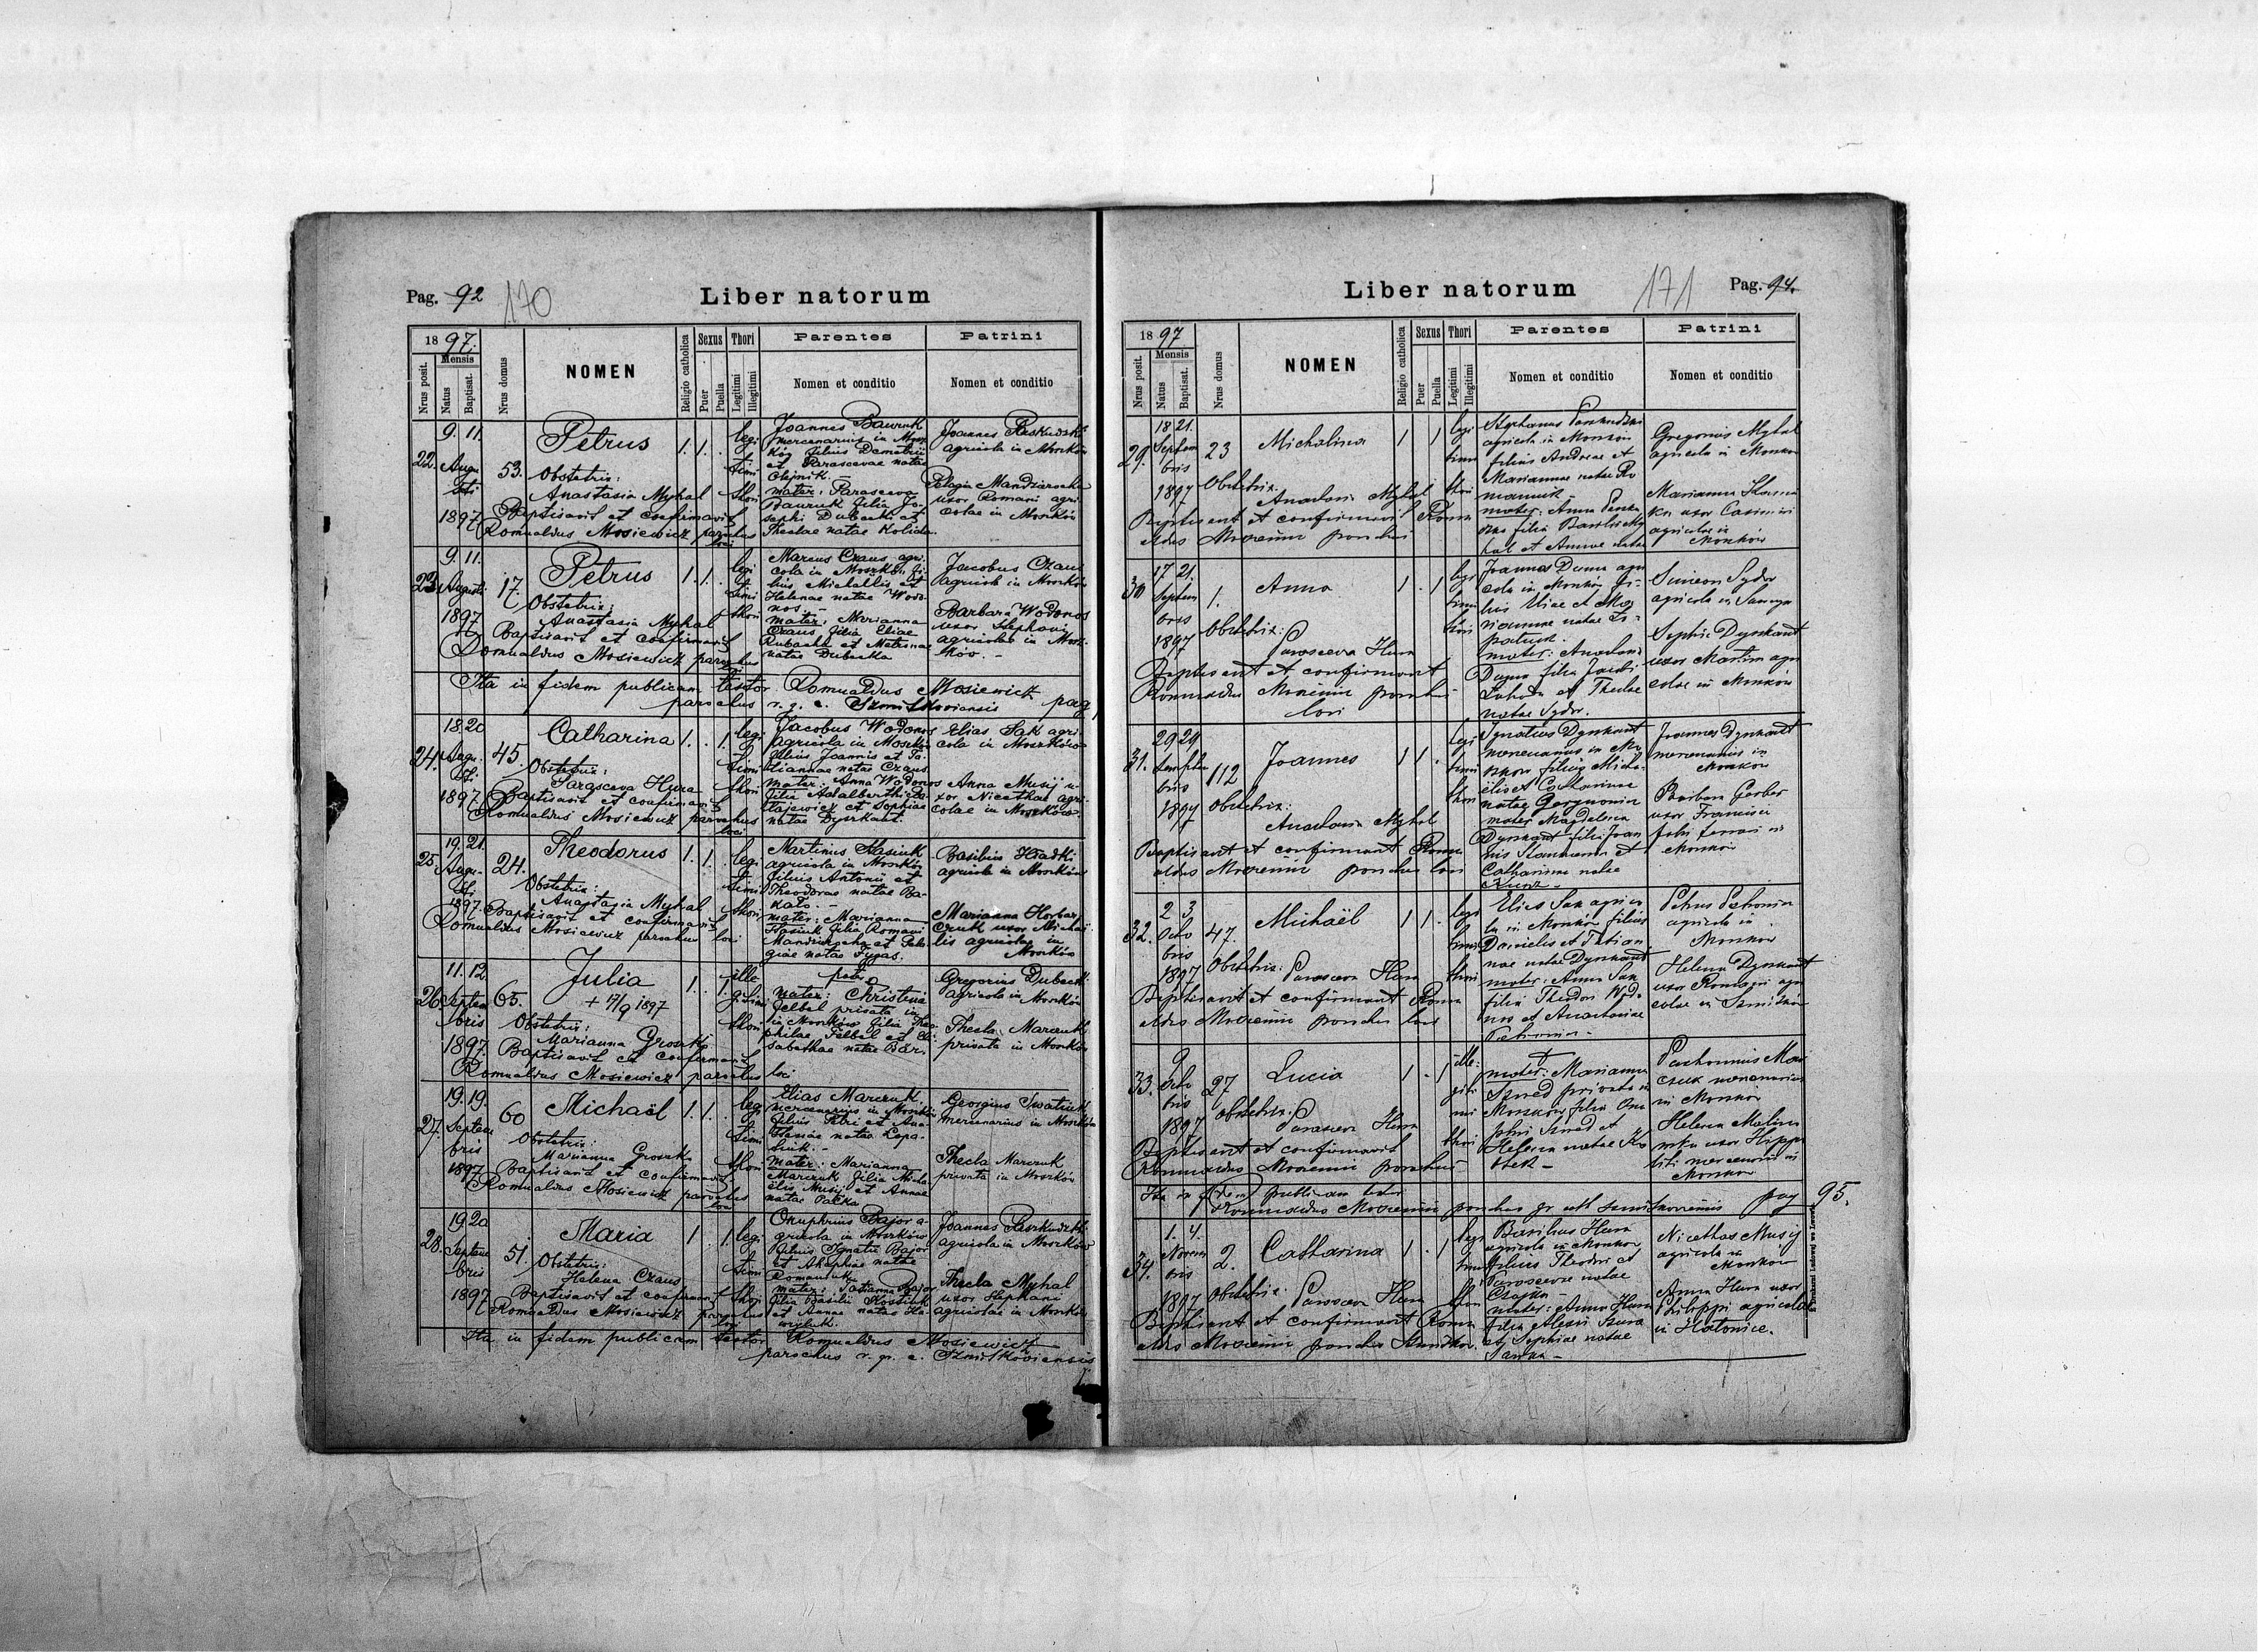 Pag. 92
170
Liber natorum
1897.
Mensis
Nrus posit.
Natus
Baptisat.
Nrus domus
NOMEN
Religio catholica
Sexus
Puer
Puella
Thori
Legitimi
Illegitimi
Parentes
Nomen et conditio
Patrini
Nomen et conditio
22.
9. 11.
Augu
sti
1897
53.
Petrus
Obstetrix:
Anastasia Myhal
Baptisavit et confirmavit
Romualdus Mosiewicz parochus
loci
1. 1.
legi
timi
thori
Joannes Bauruk
mercenarius in Mosz
ków filius Demetrii
et Parascevae natae
Olejnik.
mater: Parasceva
Bauruk filia Jo-
sephi Dubecki et
Theclae natae Kolida.
Joannes Paskudzki
agricola in Moszków
Pelagia Mandziaruka
uxor Romani agri
colae in Moszków
23.
9. 11.
Augusti
1897
17.
Petrus
Obstetrix:
Anastasia Myhal
Baptisavit et confirmavit
Romualdus Mosiewicz parochus
1. 1.
legi
timi
thori
Marcus Czaus agri-
cola in Moszków fi-
lius Michaelis et
Helenae natae Wodo
nos. -
mater: Marianna
Czaus filia Eliae
Kubacki et Matronae
natae Dubecka
Jacobus Czaus
agricola in Moszków
Barbara Wodonos
uxor Stephani
agricolae in Mosz-
ków. -
Ita in fidem publicam testor Romualdus Mosiewicz
parochus r. g. c. Szmitkoviensis pag
24.
18. 20
Augu-
sti.
1897
45.
Catharina
Obstetrix:
Parasceva Hura
Baptisavit et confirmavit
Romualdus Mosiewicz parochus
loci
1. . 1.
legi
timi
thori
Jacobus Wodonos
agricola in Moszków
filius Joannis et Ta-
tiannae natae Czaus
mater: Anna Wodonos
filia Adalberthi
et Sophiae
natae Dyszkant.
Elias Sak agri-
cola in Moszków
Anna Musij u-
xor Nicethae agri-
colae in Moszków.
25
19. 21.
Augu-
sti.
1897.
24.
Theodorus
Obstetrix:
Anastasia Myhal
Baptisavit et confirmavit
Romualdus Mosiewicz parochus loci
1. 1.
legi
timi
thori
Martinus Stasiuk
agricola in Moszków
filius Antonii et
Theodorae natae Ba-
kato. -
mater: Marianna
Stasiuk filia Romani
et Pela-
giae natae Pygas.
Basilius Hladki
agricola in Moszków
Marianna Horbar
czuk uxor Michaë
lis agricolae in
Moszków
26.
11. 12.
Septem
bris
1897.
65.
Julia
+ 17/9 1897
Obstetrix:
Marianna Groszko
Baptisavit et confirmavit
Romualdus Mosiewicz parochus loci
1. . 1.
ille
gitimi
thori
pater ?
mater: Christina
Felbel privata in
in Moszków filia Theo-
philae Felbel et Eli-
sabethae natae Bär.
Gregorius Dubecki
agricola in Moszków
Thecla Marczuk
privata in Moszków
27.
19. 19.
Septem
bris
1897.
60
Michaël
Obstetrix:
Marianna Groszko
Baptisavit et confirmavit
Romualdus Mosiewicz parochus
loci
1. 1.
legi
timi
thori
Elias Marczuk.
mercenarius in Moszków
filius Petri et Ana-
stasiae natae Lopa-
siuk. -
mater: Marianna
Marczuk filia Micha
elis Musij et Annae
natae Pačka
Georgius Swatiuk
mercenarius in Moszków
Thecla Marczuk
privata in Moszków
28.
19. 20
Septem
bris
1897
51.
Maria
Obstetrix:
Helena Czaus
Baptisavit et confirmavit
Romualdus Mosiewicz parochus
loci
1 . 1.
legi
timi
thori
Onuphrius Bajor a-
gricola in Moszków
filius Ignatii Bajor
et Ahaphiae natae
Romaniuk.
mater: Tatianna Bajor
filia Basilii Kostiuk
et Annae natae Ha-
wryluk.
Joannes Paszkudzki
agricola in Moszków
Thecla Myhal
uxor Stephani
agricolae in Moszków
Ita in fidem publicam testor Romualdus Mosiewicz
parochus r. gr. c. Szmitkoviensis
Liber natorum
171
Pag. 94.
1897
Mensis
Nrus posit.
Natus
Baptisat.
Nrus domus
NOMEN
Religio catholica
Sexus
Puer
Puella
Thori
Legitimi
Illegitimi
Parentes
Nomen et conditio
Patrini
Nomen et conditio
29.
18 21.
Septem
bris
1897
23
Michalina
Obstetrix:
Anastasia Myhal
Baptisavit et confirmavit Romu
aldus Mosiewicz parochus
1 1
legi
timi
thori
Stephanus Paszkudzki
agricola in Moszków
filius Andreae et
Mariannae natae Ro
maniuk -
mater: Anna Paszku
dzka filia Basilii My
hal et Annae natae
Gregorius Myhal
agricola in Moszków
Marianna
uxor Casimiri
agricolae in
Moszków
30
17 21.
Septem
bris
1897
1.
Anna
Obstetrix:
Parasceva Hura
Baptisavit et confirmavit
Romualdus Mosiewicz parochus
loci
1 . 1
legi
timi
thori
Joannes Duma agri
cola in Moszków fi-
lius Eliae et Ma
riannae natae Lo-
patiuk.
mater: Anastasia
Duma filia Jacobi
et Theclae
natae Sydor.
Simeon Sydor
agricola in
Sophia Dyszkant
uxor Martini agri
colae in Moszków
31.
29 29
Septem
bris
1897
112
Joannes
Obstetrix:
Anastasia Myhal
Baptisavit et confirmavit Romu
aldus Mosiewicz parochus loci
1 1 .
legi
timi
thori
Ignatius Dyszkant
mercenarius in Mo
szków filius Micha-
ëlis et Catharinae
natae
mater Magdalena
Dyszkant filia Joan
nis et
Catharinae natae
Kunz -
Joannes Dyszkant
mercenarius in
Moszków
Barbara Gerber
uxor Francisci
fabri ferrari in
Moszków
32.
2 3.
Octo
bris
1897
47.
Michaël
Obstetrix: Parasceva Hura
Baptisavit et confirmavit Romu
aldus Mosiewicz parochus loci
1 1 .
legi
timi
thori
Elias Sak agrico
la in Moszków filius
Danielis et Tatian
nae natae Dyszkant
mater: Anna Sak
filia Theodori Wodo
nos et Anastasiae
Petronia -
Petrus Petronia
agricola in
Moszków
Helena Dyszkant
uxor Romani agri
colae in Szmitków
33.
Octo
bris
1897
27
Lucia
Obstetrix:
Parasceva Hura
Baptisavit et confirmavit
Romualdus Mosiewicz parochus
1 . 1
ille-
giti
mi
thori
mater: Marianna
Szwed privata in
Moszków filia Onu
phrii Szwed et
Helenae natae
Pachomius Mar
czuk mercenarius
in Moszków
Helena
uxor Hippo
liti mercenarii in
Moszków
Ita in fidem publicam testor
Romualdus Mosiewicz parochus gr. cath. Szmitkoviensis pag 95.
34.
1. 4.
Novem
bris
1897
2.
Catharina
Obstetrix: Parasceva Hura
Baptisavit et confirmavit Romu
aldus Mosiewicz parochus Szmitkov.
1 . 1
legi
timi
thori
Basilius Hura
agricola in Moszków
filius Theodori et
Parascevae natae
Czajka -
mater: Anna Hura
filia Alexii
et Sophiae natae
Nicethas Musij
agricola in
Moszków
Anna Hura uxor
Philippi agricolae
in Hatowice.